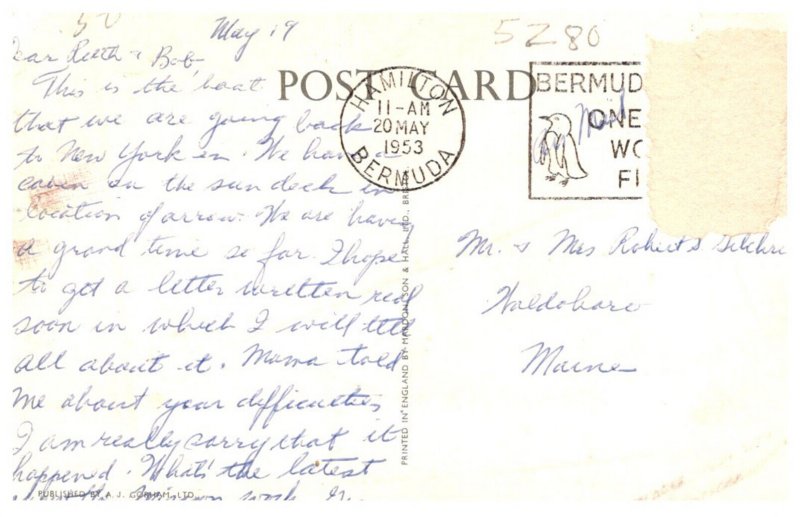 5280
May 19
Dear Ruth & Bob
This is the boat
that we are going back
to New York in. We have a
cabin on the sun deck in
location of arrow. We are having
a grand time so far. I hope
to get a letter written real
soon in which I will tell
all about it. Mama told
me about your difficulties,
I am really sorry that it
happened. What's the latest
POST CARD
HAMILTON
11-AM
20 MAY
1953
BERMUDA
BERMUD
ONE
WO
FI
Mr. & Mrs Robert S Gilchre
Waldoboro
Maine
PRINTED IN ENGLAND BY MARDON, SON & HALL, LTD., BRIS
PUBLISHED BY A. J. GORHAM, LTD.